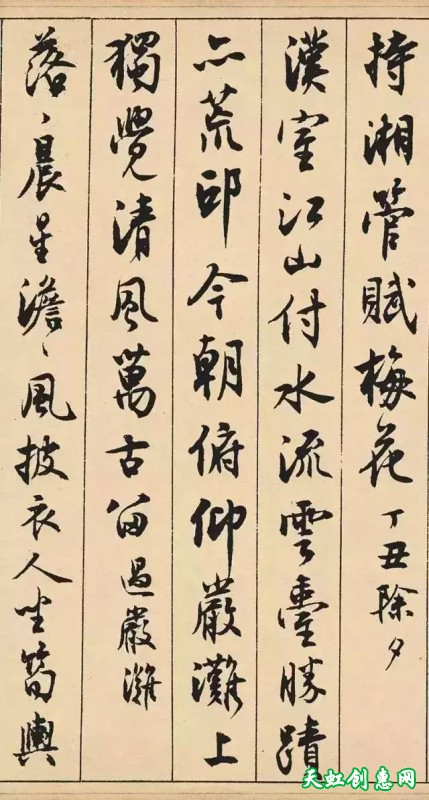 持湘管賦梅花 丁丑除夕
漢室江山付水流雲臺勝蹟
亦荒邱今朝俯仰嚴灘上
獨覺清風萬古留 過嚴灘
落々晨星澹々風披衣人坐筍輿
天虹创惠网